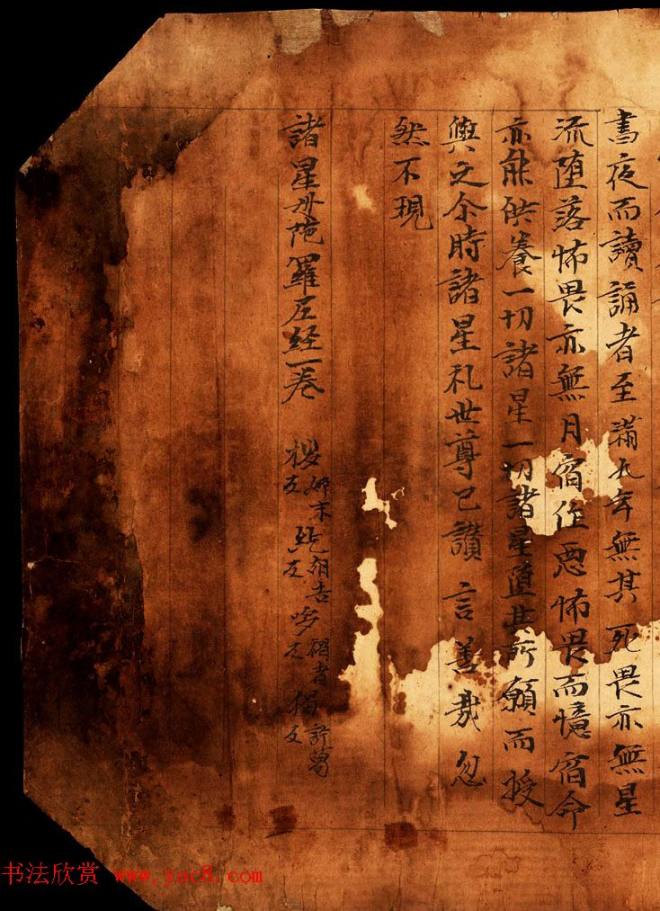 晝夜而讀誦者至滿九年無其死畏亦無星
流堕落怖畏亦無月宿作惡怖畏而憶宿命
亦能供養一切諸星一切諸星随其所願而授
與之尒時諸星礼世尊已讃言善哉忽
然不現
諸星母陁羅尼経一卷 拶 末反 紇 胡吉反 哆 者反
书法欣赏 www.yac8.com